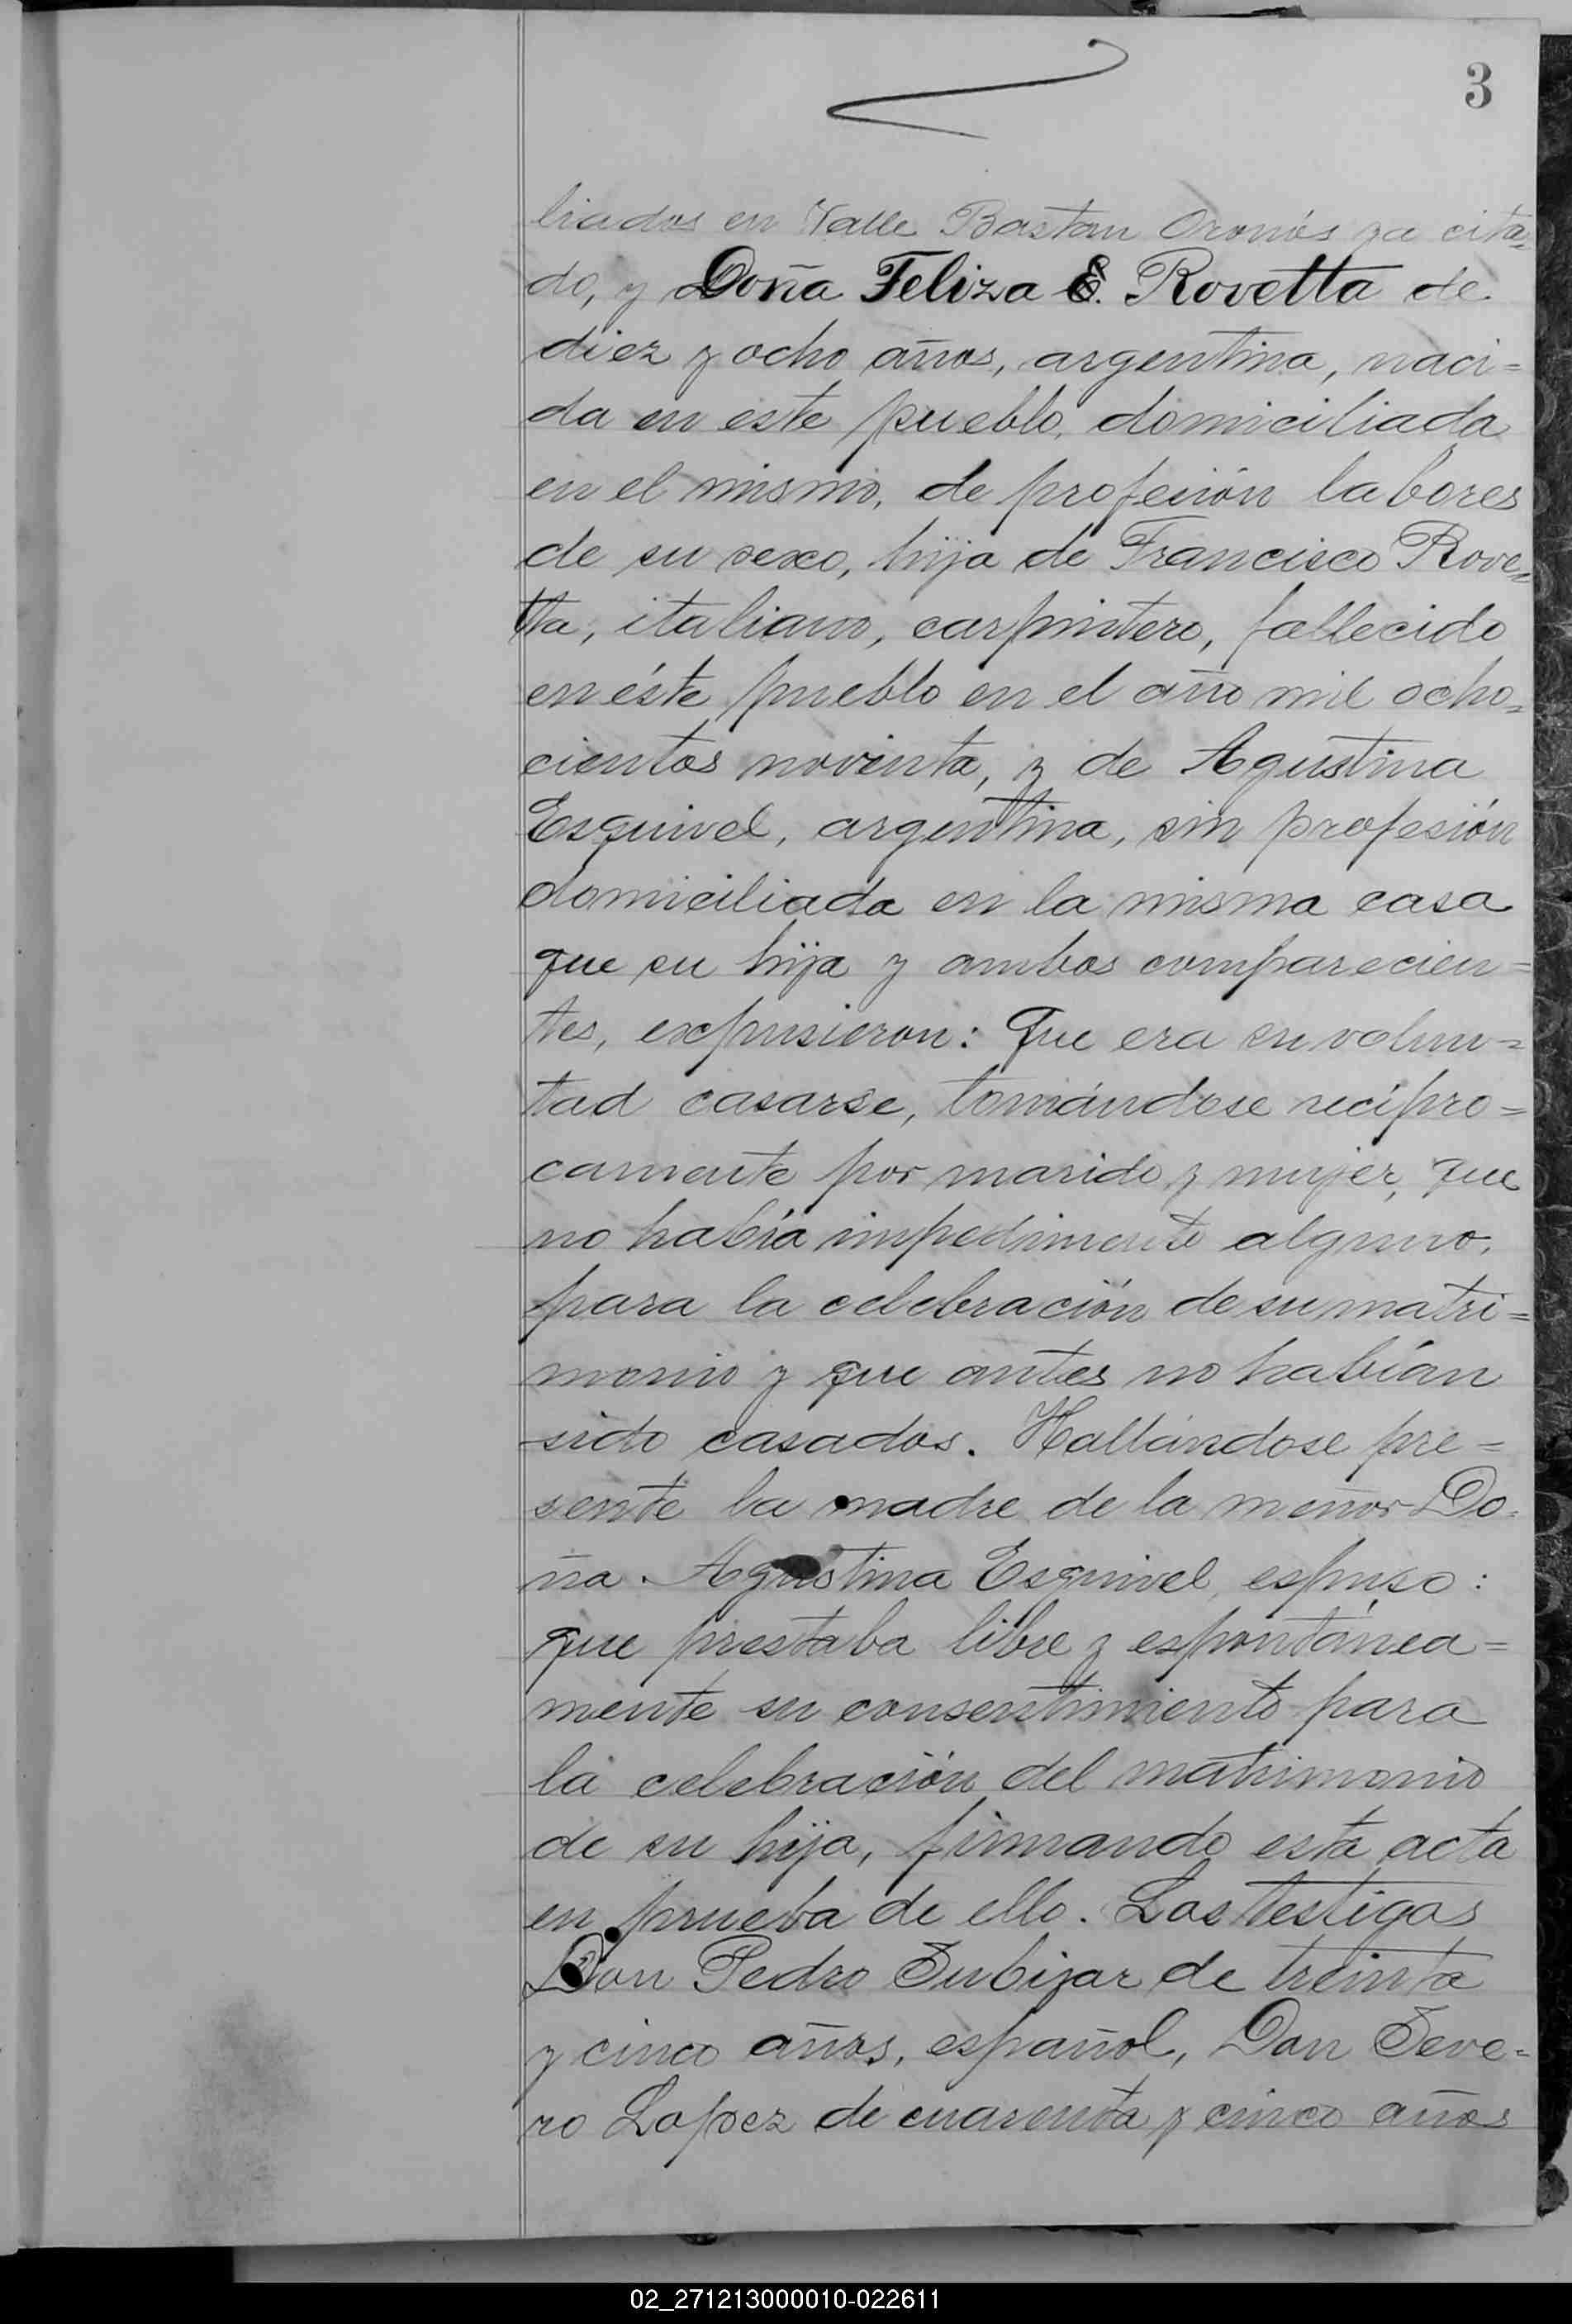 3
liados en Valle Bastan Oronós ya cita=
do, y Doña Feliza E. Rovetta de
diez y ocho años, argentina, naci=
da en este pueblo, domiciliada
en el mismo, de profesión labores
de su sexo, hija de Francisco Rove=
tta, italiano, carpintero, fallecido
en éste pueblo en el año mil ocho=
cientos noventa, y de Agustina
Esquivel, argentina, sin profesión
domiciliada en la misma casa
que su hija y ambos comparecien=
tes, expusieron: Que era su volun=
tad casarse, tomándose recípro=
camente por marido y mujer, que
no había impedimento alguno,
para la celebración de su matri=
monio y que antes no habían
sido casados. Hallándose pre=
sente la madre de la menor Do=
ña Agustina Esquivel, espuso:
que prestaba libre y espontánea=
mente su consentimiento para
la celebración del matrimonio
de su hija, firmando esta acta
en prueba de ello. Los testigos
Don Pedro Subizar de treinta
y cinco años, español, Don Seve=
ro Lopez de cuarenta y cinco años
02_271213000010-022611